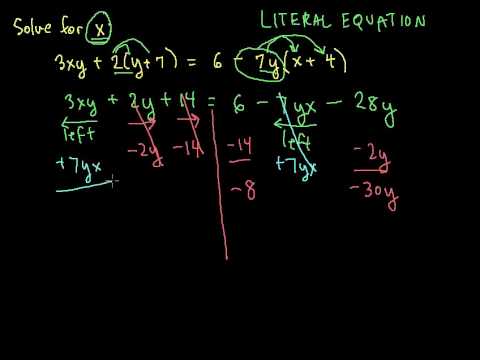 Solve for x LITERAL EQUATION
3xy + 2(y+7) = 6 - 7y(x+4)
3xy + 2y + 14 = 6 - 7yx - 28y
left left
+7yx -2y -14 -14 +7yx -2y
-8 -30y